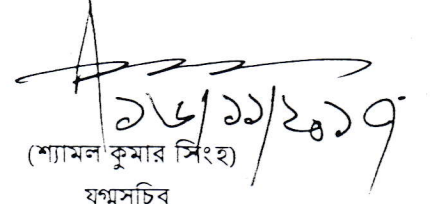 ১৬/১১/২০১৭
(শ্যামল কুমার সিংহ)
যুগ্মসচিব